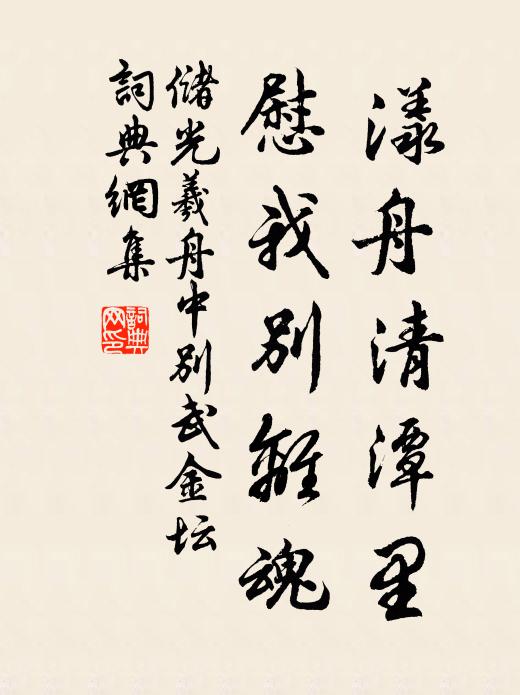 漾舟清潭里
慰我別離魂
儲光羲舟中別武金坛
詞典網集
詞典网印